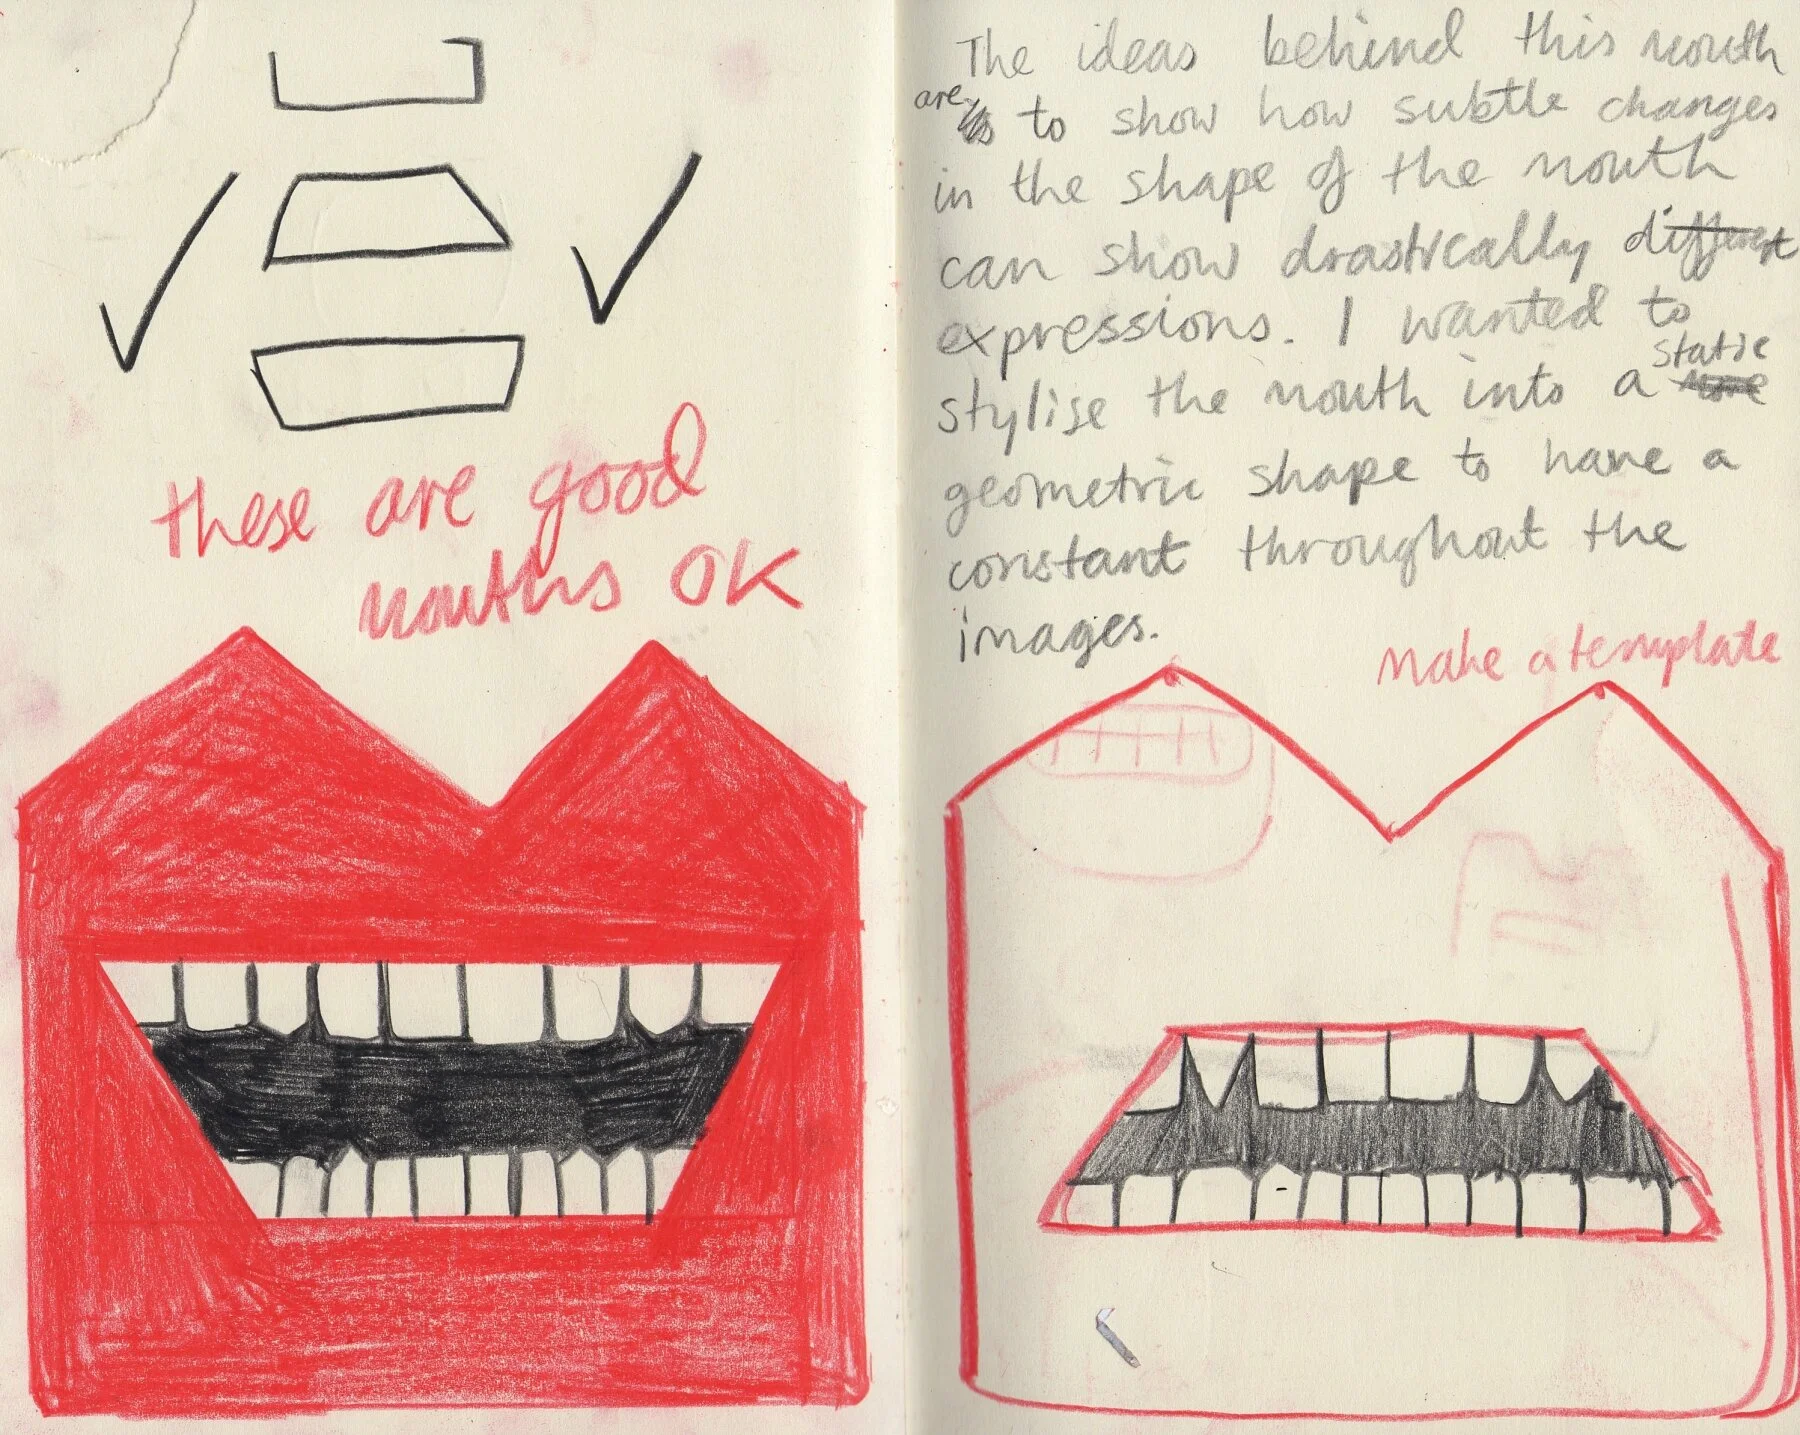 these are good
mouths OK
The ideas behind this mouth
are to show how subtle changes
in the shape of the mouth
can show drastically different
expressions. I wanted to
stylise the mouth into a static
geometric shape to have a
constant throughout the
images.
Make a template